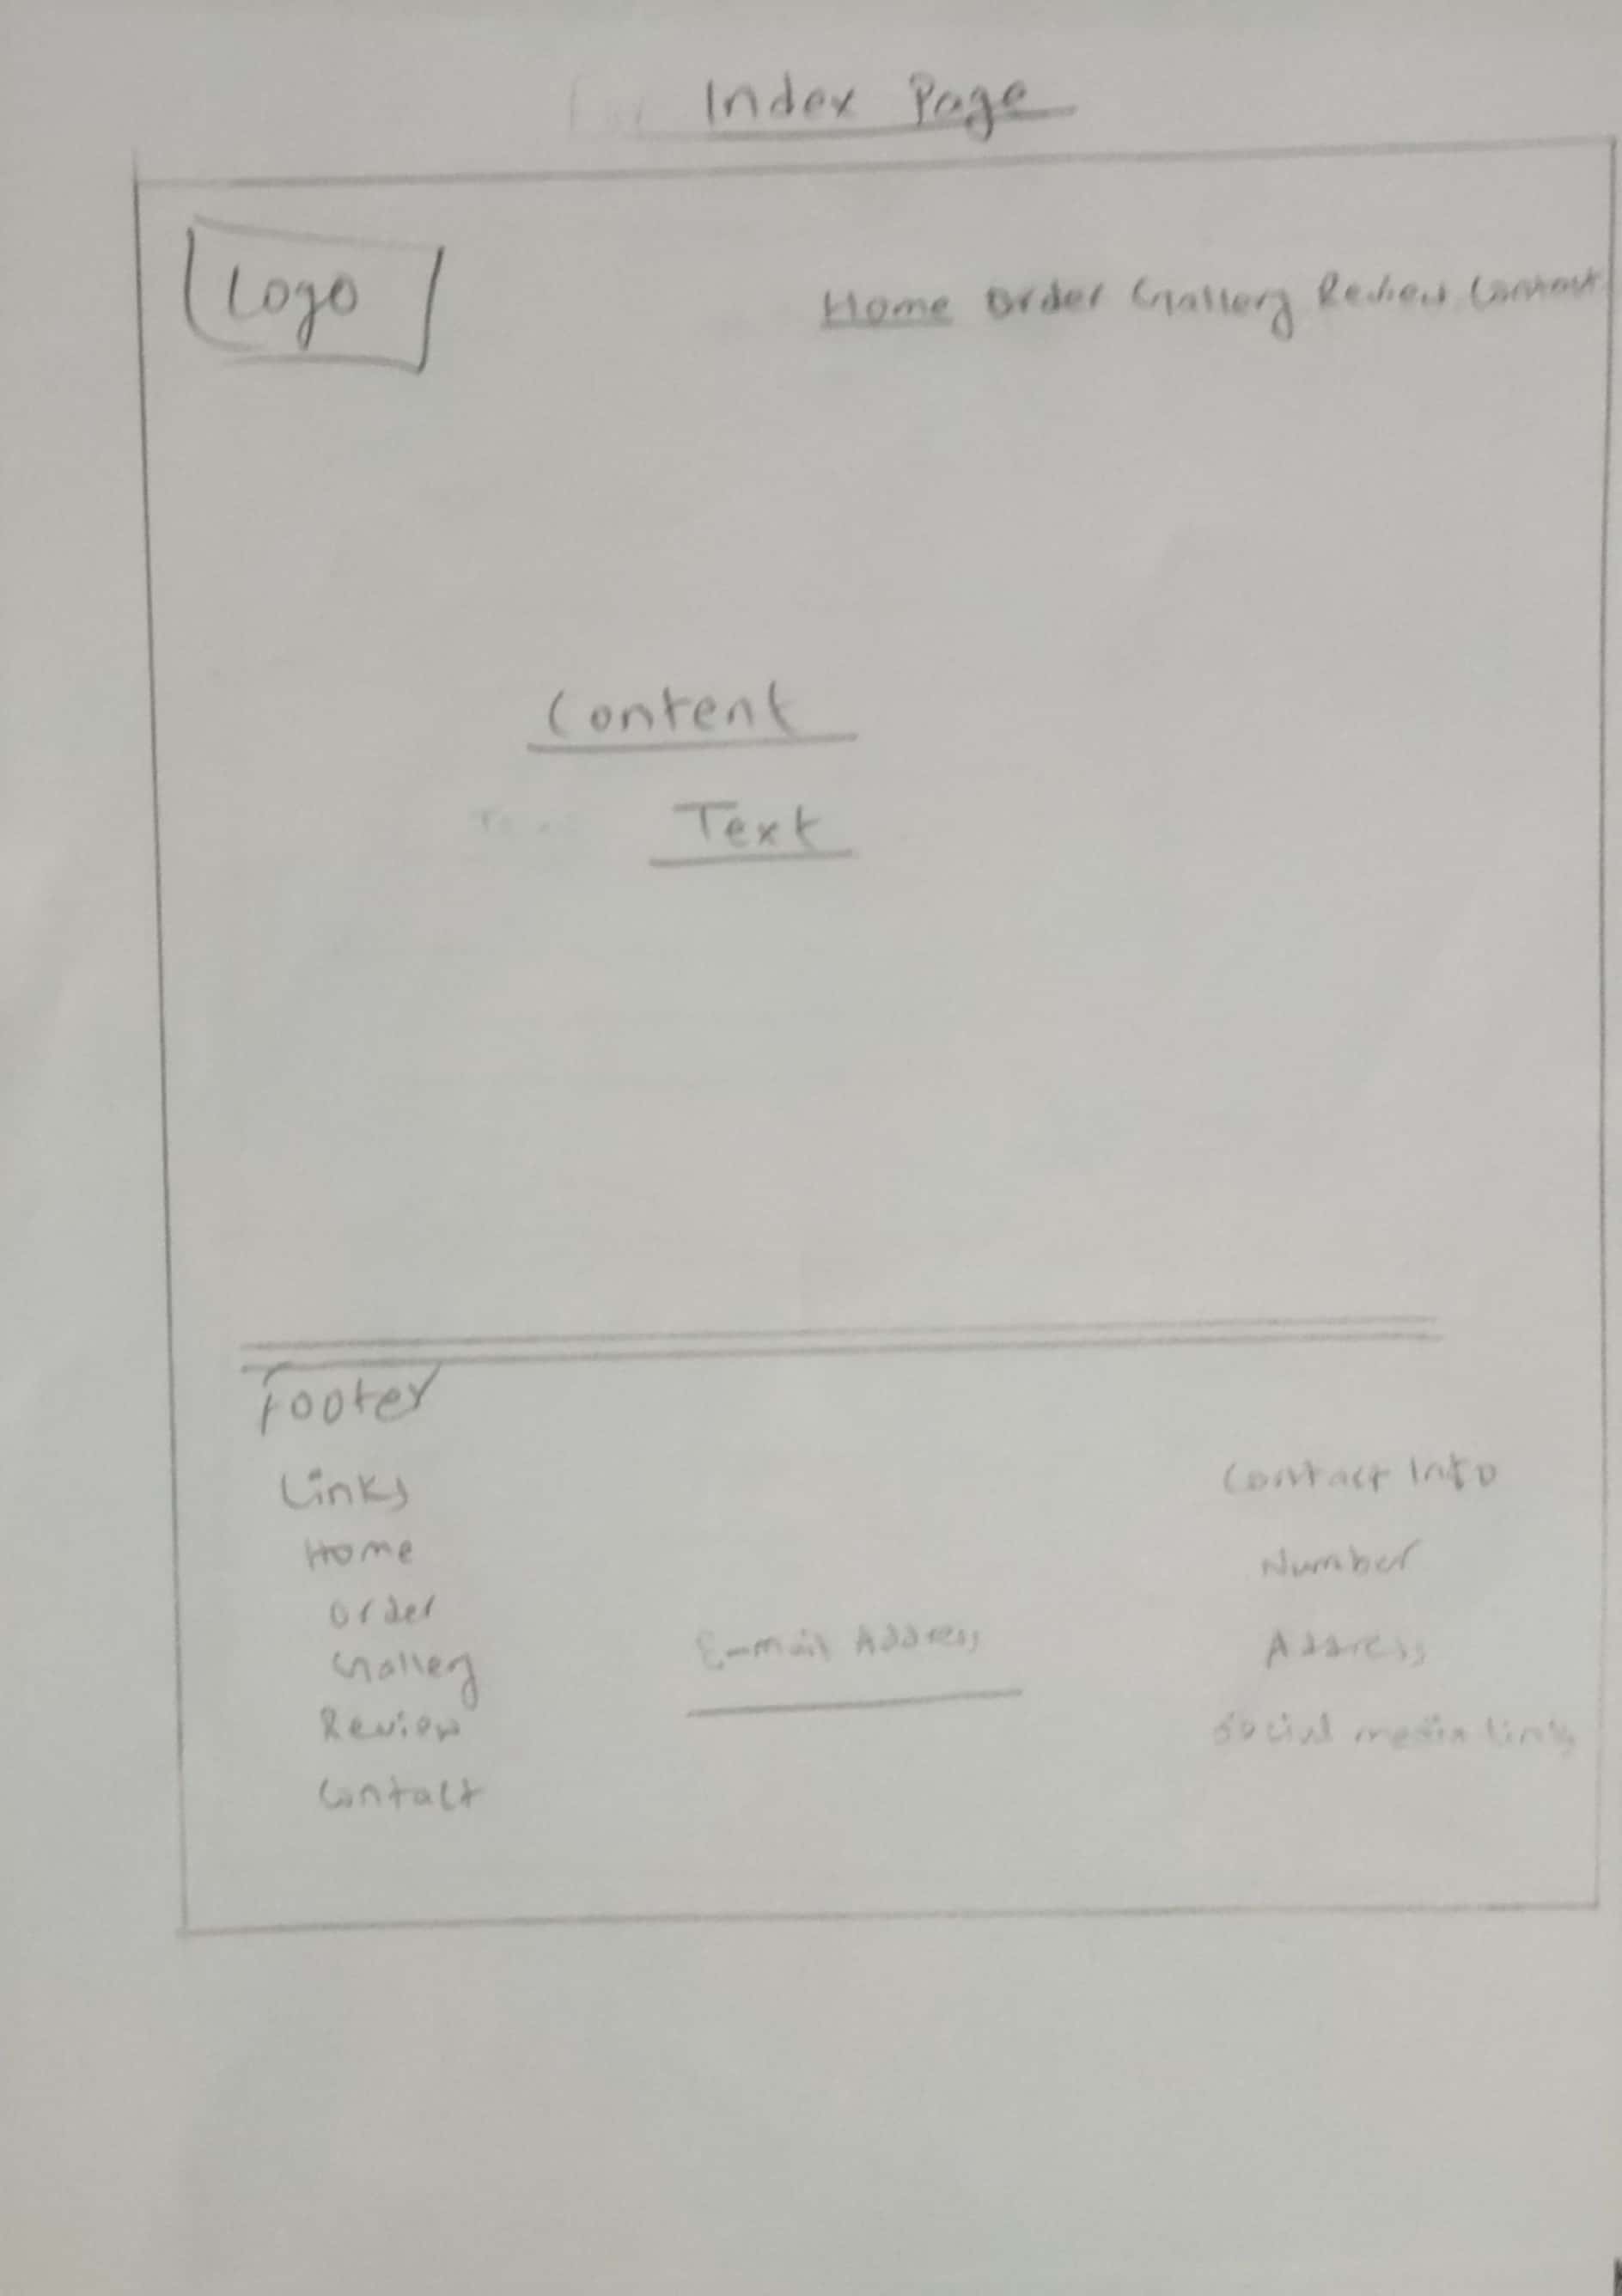 Index Page
Logo
Home Order Gallery Review Contact
Content
Text
Footer
Links
Home
Order
Gallery
Review
Contact
E-mail Address
Contact Info
Number
Address
Social media links